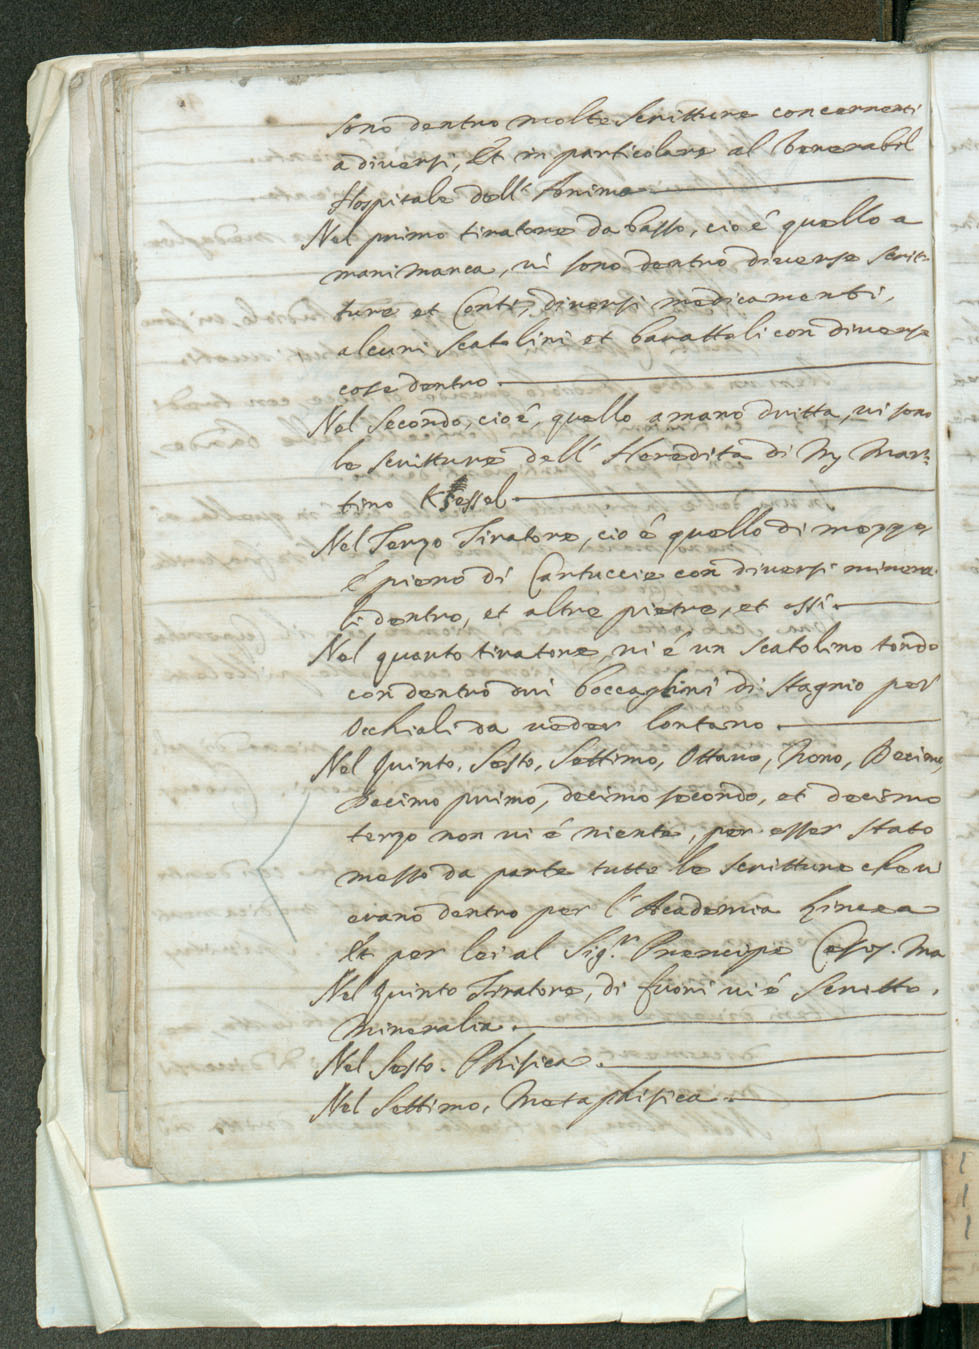 sono dentro molte scritture concernenti
a diversi, Et in particolare al Venerabil
Hospitale dell' Anima
Nel primo tiratore da basso, cio é quello a
mani manca, vi sono dentro diverse scrit-
ture et Conti, diversi medicamenti,
alcuni scatolini et barattoli con diverse
cose dentro
Nel secondo, cio é, quello a mano dritta, vi sono
le scritture dell' Heredita di Mr Mar-
tino Kessel
Nel Terzo Tiratore, cio é quello di mezzo,
é pieno di Cartuccie con diversi minera-
li dentro, et altre pietre, et assi.
Nel quarto tiratore, vi é un scatolino tondo
con dentro dui boccaglini di stagnio per
Occhiali da veder lontano.
Nel Quinto, Sesto, Settimo, Ottavo, Nono, Decimo,
Decimo primo, decimo secondo, et decimo
terzo non vi é niente, per esser stato
messo da parte tutte le scritture che vi
erano dentro per l' Academia Lincea
Et per lei al Sig.r Prencipe Cesis. Ma
Nel Quinto Tiratore, di fuori vi é scritto,
Mineralia.
Nel Sesto. Phisica.
Nel Settimo, Metaphisica.